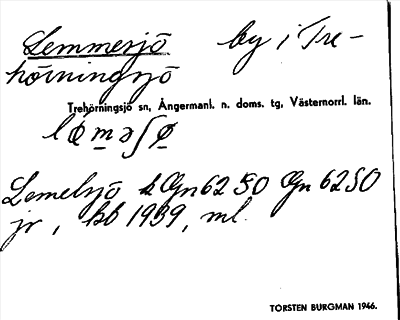 Lemmesjö by i Tre-
hörningsjö
Trehörningsjö sn, Ångermanl. n. doms. tg, Västernorrl. län.
løməʃø
Lemelsjö Gn 62 50 Gn 6250
jr, bb 1939, ml.
TORSTEN BURGMAN 1946.